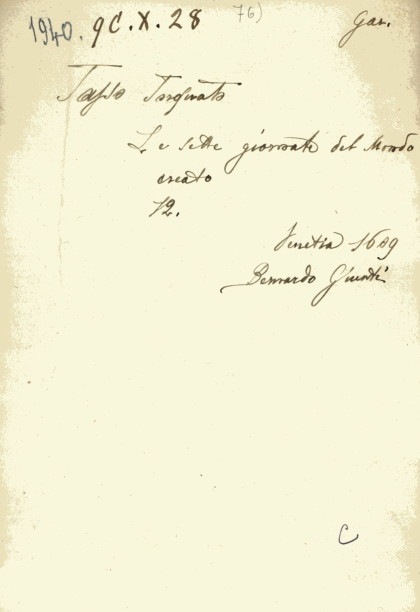 1940. 9C.X.28 76) Gar.
Tasso Torquato
Le sette giornate del Mondo
creato
12.
Venetia 1609
Bernardo Giunti
C